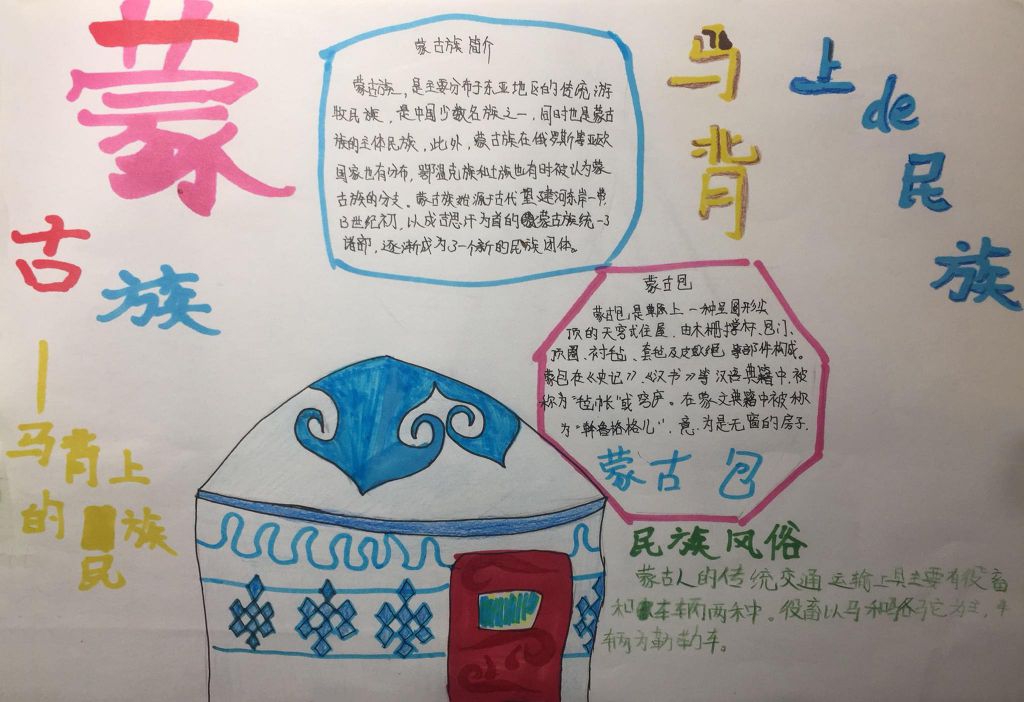 蒙
古
族
—
马背上
的民族
马背
上de民族
蒙古族简介
蒙古族，是主要分布于东亚地区的传统游
牧民族，是中国少数名族之一，同时也是蒙古
族的主体民族，此外，蒙古族在俄罗斯等亚欧
国家也有分布，鄂温克族和土族也有时被认为蒙
古族的分支。蒙古族始源于古代望建河东岸一带
13世纪初，以成吉思汗为首的蒙古族统一了
诸部，逐渐成为了一个新的民族团体。
蒙古包
蒙古包是草原上一种呈圆形尖
顶的天穹式住屋，由木栅撑杆、包门、
顶圈、衬毡、套毡及皮绳等部件构成。
蒙包在《史记》，《汉书》等汉语典籍中，被
称为"毡帐"或穹庐"。在蒙文典籍中被称
为"斡鲁格儿"，意为是无窗的房子.
蒙古包
民族风俗
蒙古人的传统交通运输工具主要有役畜
和车辆两种。役畜以马和骆驼为主，车
辆为勒勒车。